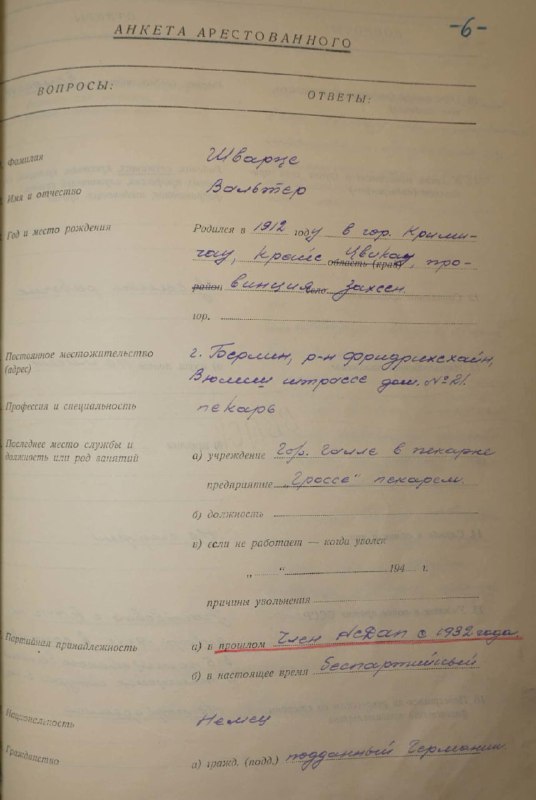 -6-
АНКЕТА АРЕСТОВАННОГО
ВОПРОСЫ:
ОТВЕТЫ:
Фамилия
Шварце
Имя и отчество
Вальтер
Год и место рождения
Родился в 1912 году в гор. Крими-
чау, крайс Цвикау область (край), про-
район винция село Захсен
гор.
Постоянное местожительство
(адрес)
г. Берлин, р-н Фридрихсхайн,
штрассе дом. №21.
Профессия и специальность
пекарь
Последнее место службы и
должность или род занятий
а) учреждение Гор. Галле в пекарне
предприятие „Гроссе" пекарем
б) должность
в) если не работает — когда уволен
„ " 194 г.
причины увольнения
Партийная принадлежность
а) в прошлом Член НСДАП с 1932 года
б) в настоящее время беспартийный
Национальность
Немец
Гражданство
а) гражд. (подд.) подданный Германии